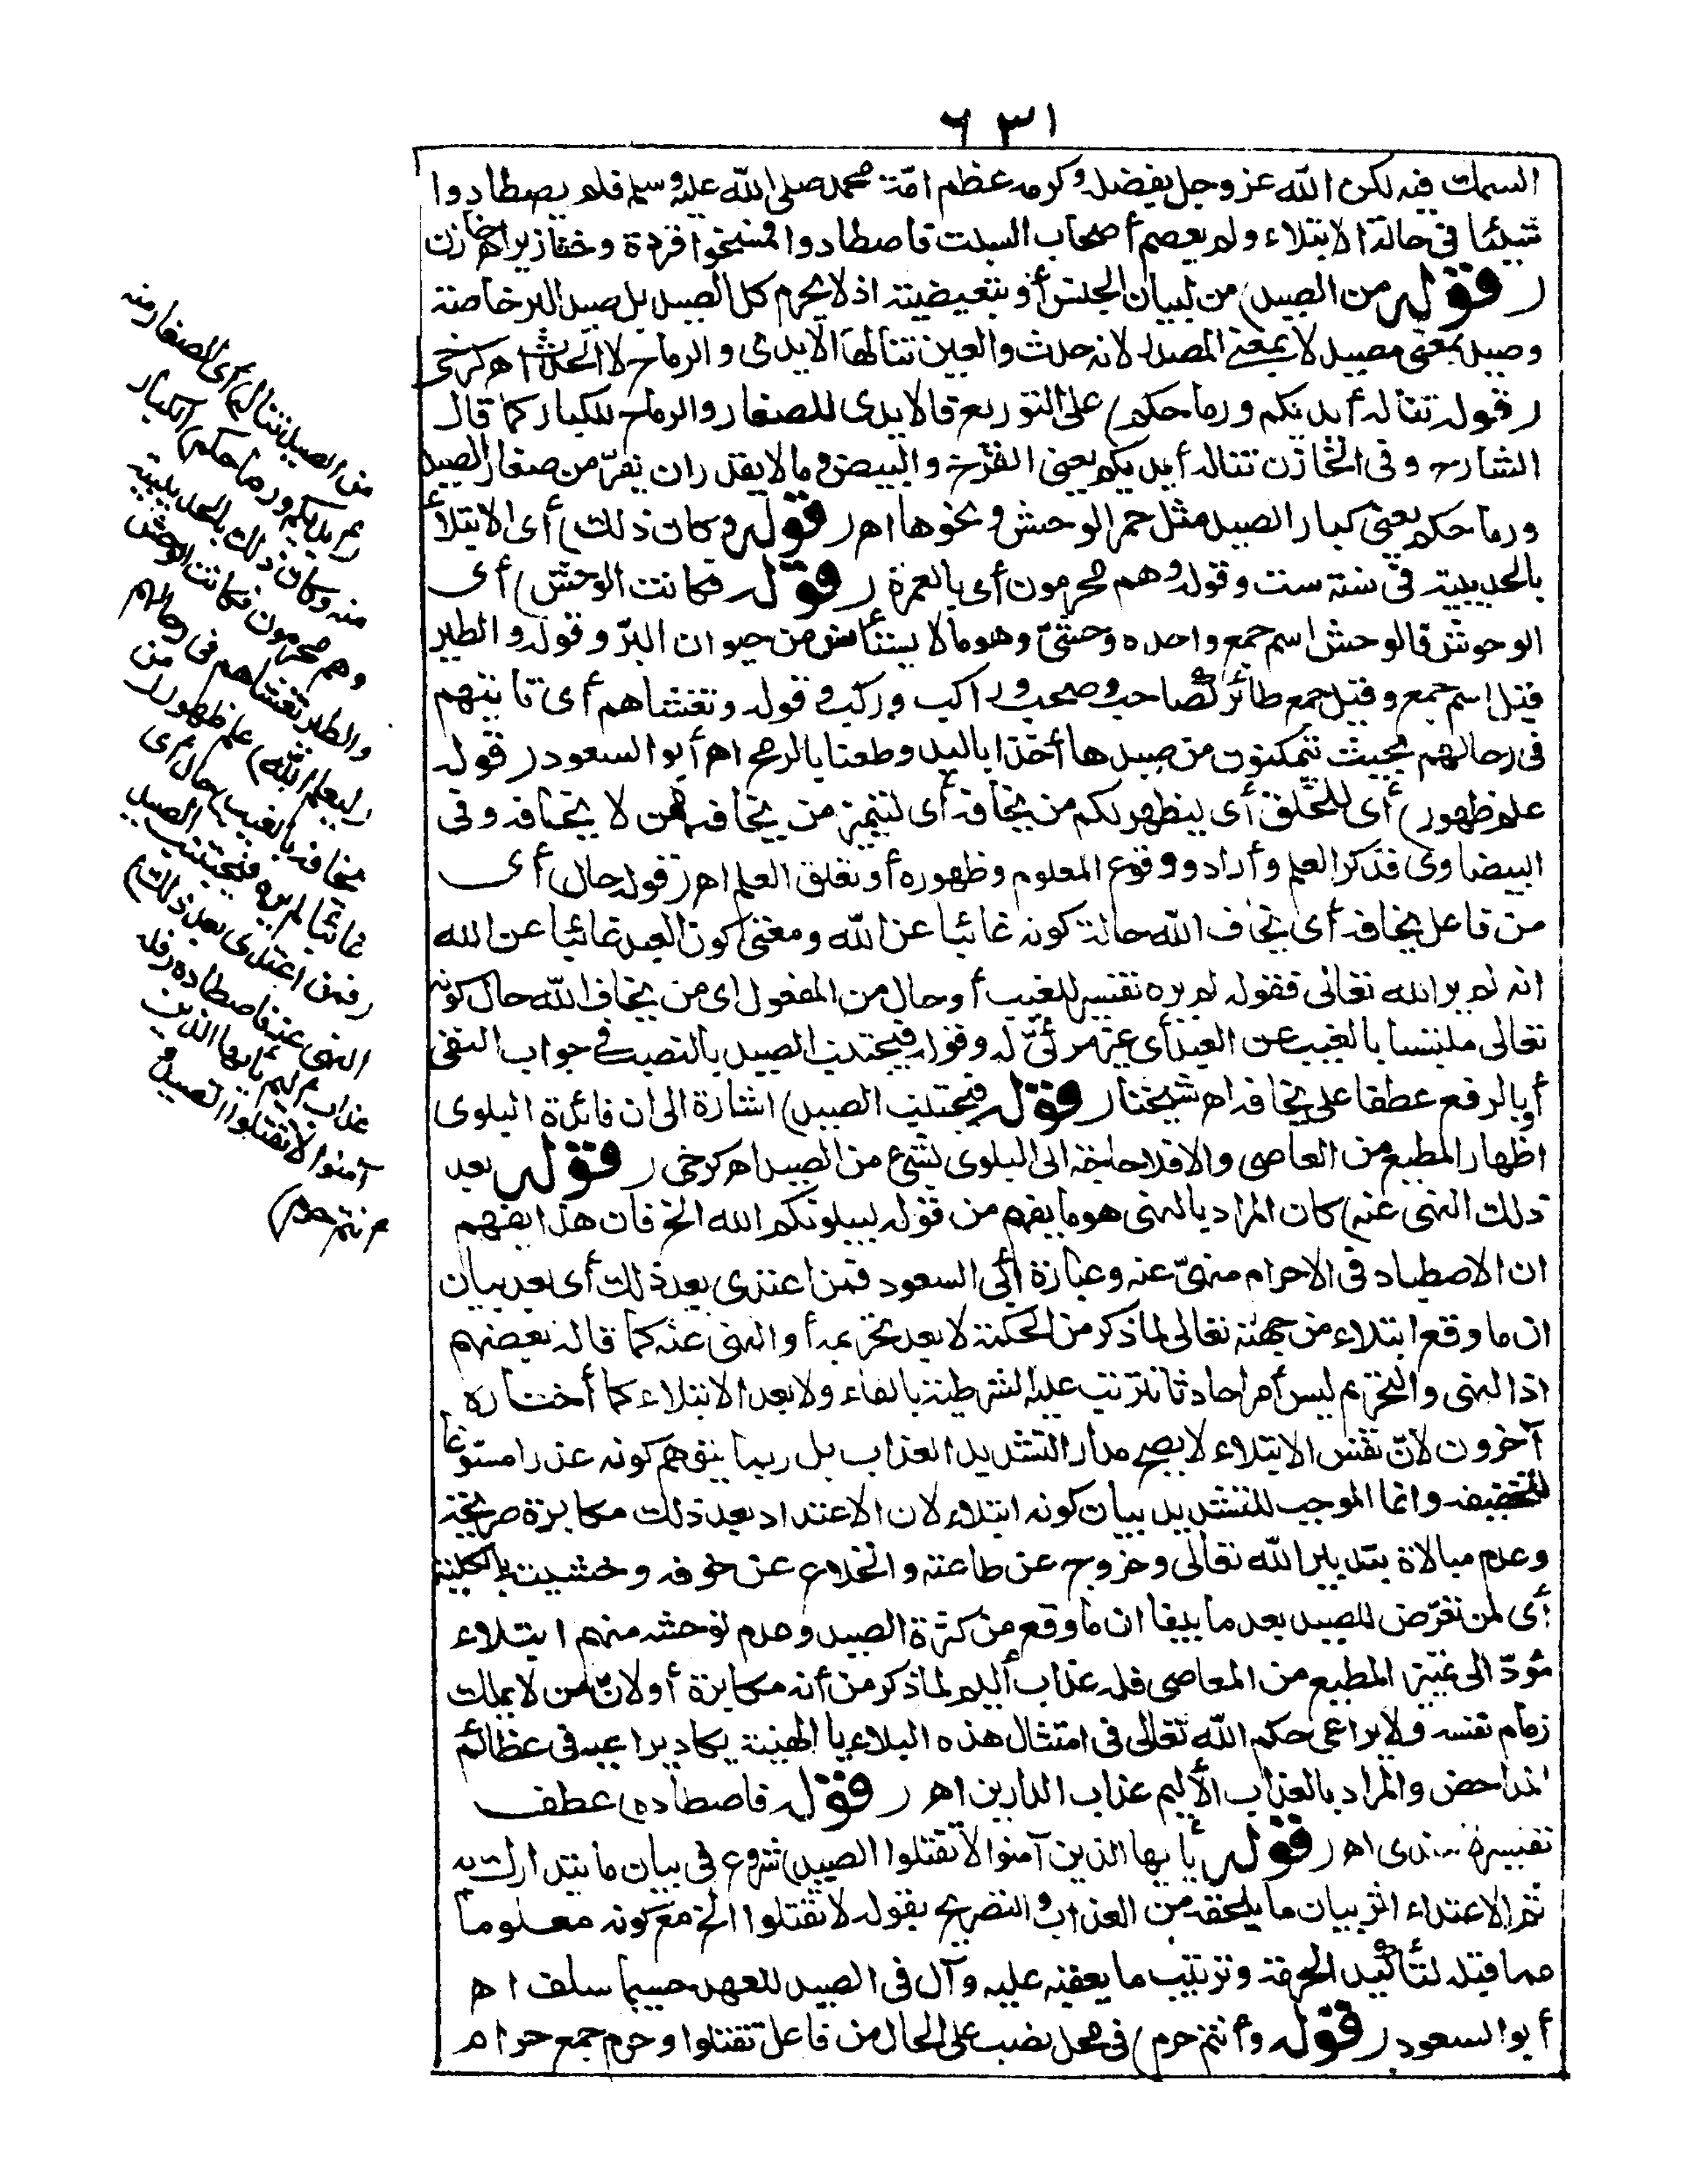 ٦٣١
السمك فيه لكن الله عز وجل بفضله وكرمه عظم امّة محمد صلى الله عليه وسلم فلم يصطادوا
شيئا في حالة الابتلاء ولم يعصم أصحاب السبت فاصطادوا فمسخوا قردة وخنازير اه خازن
(قوله من الصيد) من لبيان الجنس أو تبعيضية اذ لا يحرم كل الصيد بل صيد البر خاصة
وصيد بمعنى مصيد لا بمعنى المصدر لانه حدث والعين تنالها الايدى والرماح لا الحدث اه كرخى
(قوله تناله أيديكم ورماحكم) على التوزيع فالايدى للصغار والرماح للكبار كما قال
الشارح وفى الخازن تناله أيديكم يعنى الفرخ والبيض وما لا يقدر ان يفرّ من صغار الصيد
ورماحكم يعنى كبار الصيد مثل حمر الوحش ونحوها اه (قوله وكان ذلك) أى الابتلاء
بالحديبية فى سنة ست وقوله وهم محرمون أى بالعمرة (قوله فكانت الوحش) أى
الوحوش فالوحش اسم جمع واحده وحشىّ وهو ما لا يستأنس من حيوان البرّ وقوله والطير
قيل اسم جمع وقيل جمع طائر كصاحب وصحب وراكب وركب وقوله وتغشاهم أى تأتيهم
فى رحالهم بحيث تتمكنون من صيدها أخذا باليد وطعنا بالرمح اه أبو السعود (قوله
علم ظهور) أى للخلق أى ليظهر لكم من يخافه أى لتتميز من يخافه ممن لا يخافه وفى
البيضاوى فذكر العلم وأراد وقوع المعلوم وظهوره أو تعلق العلم اه (قوله حال) أى
من فاعل يخافه أى يخاف الله حالة كونه غائبا عن الله ومعنى كون العبد غائبا عن الله
انه لم ير الله تعالى فقوله لم يره تفسير للغيب أو حال من المفعول اى من يخاف الله حال كونه
تعالى ملتبسا بالغيب عن العبد أى غير مرئىّ له وقوله فيجتنب الصيد بالنصب فى جواب النفى
أو بالرفع عطفا على يخافه اه شيخنا (قوله فيجتنب الصيد) اشارة الى ان فائدة البلوى
اظهار المطيع من العاصى والا فلا حاجة الى البلوى بشىء من الصيد اه كرخى (قوله بعد
ذلك النهى عنه) كان المراد بالنهى هو ما يفهم من قوله ليبلونكم الله الخ فان هذا يفهم
ان الاصطياد فى الاحرام منهىّ عنه وعبارة أبى السعود فمن اعتدى بعد ذلك أى بعد بيان
ان ما وقع ابتلاء من جهته تعالى لما ذكر من الحكمة لا بعد تحريمه أو النهى عنه كما قاله بعضهم
اذ النهى والتحريم ليس أمرا حادثا تترتب عليه الشرطية بالفاء ولا بعد الابتلاء كما أختاره
آخرون لانّ نفس الابتلاء لا يصح مدار التشديد العذاب بل ربما يتوهم كونه عذرا مسوّغا
للتخفيف وانما الموجب للتشديد بيان كونه ابتلاء لان الاعتداد بعد ذلك مكابرة صريحة
وعدم مبالاة بتدبير الله تعالى وخروج عن طاعته وانخلاع عن خوفه وخشيته بالكلية
أى لمن تعرّض للصيد بعد ما بينا ان ما وقع من كثرة الصيد وعدم توحشه منهم ابتلاء
مؤدّ الى تميّز المطيع من المعاصى فله عذاب أليم لما ذكر من أنه مكابرة أو لانّ من لا يملك
زمام نفسه ولا يراعى حكم الله تعالى فى امتثال هذه البلاء يا الهينة يكاد يراعيه فى عظائم
المداحض والمراد بالعذاب الأليم عذاب الدارين اه (قوله فاصطاده) عطف
تفسير اه (قوله يأيها الذين آمنوا لا تقتلوا الصيد) شروع فى بيان ما يتدارك به
ثم الاعتداء اثر بيان ما يلحقه من العذاب والتصريح بقوله لا تقتلوا الخ مع كونه معلوما
مما قبله لتأكيد الحرمة وترتيب ما يعقبه عليه وآل فى الصيد للعهد حسبما سلف اه
أبو السعود (قوله وأنتم حرم) فى محل نصب على الحال من فاعل تقتلوا وحرم جمع حرام
من الصيد تناله) أى الصغار منه
(أيديكم ورماحكم) الكبار
منه وكان ذلك بالحديبية
وهم محرمون فكانت الوحش
والطير تغشاهم فى رحالهم
(ليعلم الله) علم ظهور (من
يخافه بالغيب) حال أى
غائبا لم يره فيجتنب الصيد
(فمن اعتدى بعد ذلك)
النهى عنه فاصطاده (فله
عذاب أليم يأيها الذين
آمنوا لا تقتلوا الصيد و
أنتم حرم)